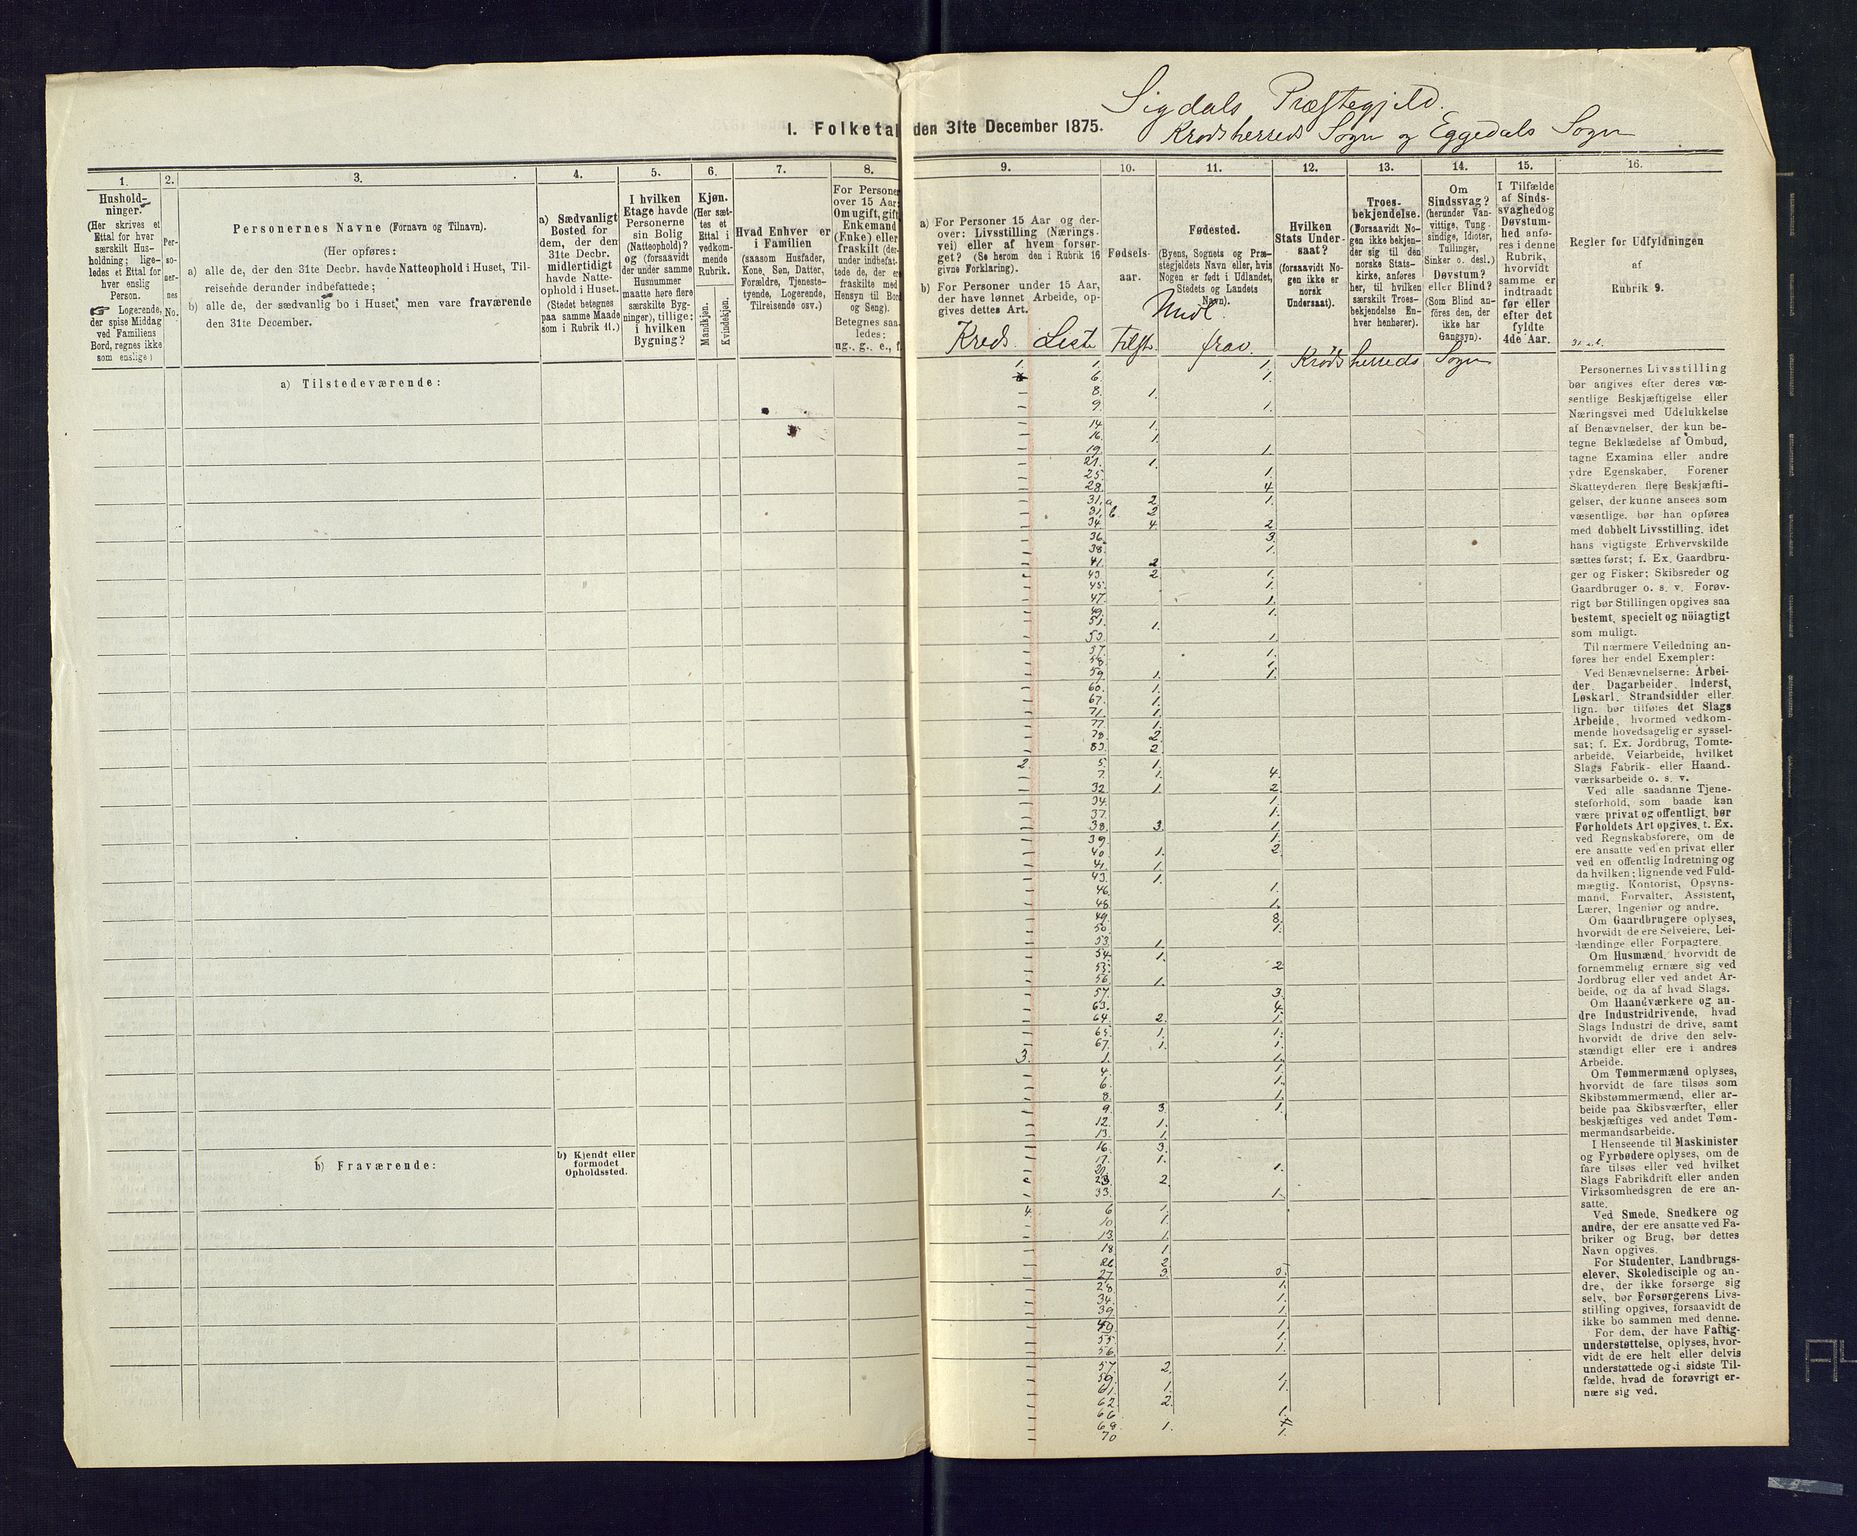 Sigdals Præstegjeld.
Krødsherreds Sogn og Eggedals Sogn
I. Folketal den 31te December 1875.
1.
Hushold-
ninger.
(Her skrives et
Ettal for hver
særskilt Hus-
holdning; lige-
ledes et Ettal for
hver enslig
Person.
☞ Logerende,
der spise Middag
ved Familiens
Bord, regnes ikke
som enslige)
2.
Per-
so-
ner-
nes
No.
3.
Personernes Navne (Fornavn og Tilnavn).
(Her opføres:
a) alle de, der den 31te Decbr. havde Natteophold i Huset, Til-
reisende derunder indbefattede;
b) alle de, der sædvanlig bo i Huset, men vare fraværende
den 31te December.
4.
a) Sædvanligt
Bosted for
dem, der den
31te Decbr.
midlertidigt
havde Natte-
ophold i Huset.
(Stedet betegnes
paa samme Maade
som i Rubrik 11.)
5.
I hvilken
Etage havde
Personerne
sin Bolig
(Natteophol)?
og (forsaavidt
der under samme
Husnummer
maatte høre flere
særskilte Byg-
ninger), tillige:
i hvilken
Bygning?
6.
Kjøn.
(Her sæt-
tes et
Ettal i
vedkom-
mende
Rubrik.
Mandkjøn.
Kvindekjøn.
7.
Hvad Enhver er
i Familien
(saasom Husfader,
Kone, Søn, Datter,
Forældre, Tjeneste-
tyende, Logerende,
Tilreisende osv.)
8.
For Personer
over 15 Aar:
Om ugift, gift
Enkemand
(Enke) eller
fraskilt (der-
under indbefat-
tede de, der ere
fraskilte med
Hensyn til Bord
og Seng).
Betegnes saa-
ledes:
ug., g., e., f.
9.
a) For Personer 15 Aar og der-
over: Livsstilling (Nærings-
vei) eller af hvem forsør-
get? (Se herom den i Rubrik 16
givne Forklaring).
b) For Personer under 15 Aar,
der have lønnet Arbeide, op-
gives dettes Art.
10.
Fødsels-
aar.
11.
Fødested.
(Byens, Sognets og Præ-
stegjeldets Navn eller, hvis
Nogen er født i Udlandet,
Stedets og Landets
Navn).
12.
Hvilken
Stats Under-
saat?
(forsaavidt No-
gen ikke er
norsk
Undersaat).
13.
Troes-
bekjendelse.
(Forsaavidt No-
gen ikke bekjen-
der sig til den
norske Stats-
kirke, anføres
her, til hvilken
særskilt Troes-
bekjendelse En-
hver henhører).
14.
Om
Sindssvag?
(herunder Van-
vittige, Tung-
sindige, Idioter,
Tullinger,
Sinker o. desl.)
Døvstum?
eller Blind?
(Som Blind an-
føres den, der
ikke har
Gangsyn).
15.
I Tilfælde
af Sinds-
svaghed og
Døvstum-
hed anfø-
res i denne
Rubrik,
hvorvidt
samme er
indtraadt
før eller
efter det
fyldte
4de Aar.
16.
Regler for Udfyldningen
af
Rubrik 9.
Kreds. Liste Tilst. Midl. frav.
a) Tilstedeværende:
b) Fraværende:
b) Kjendt eller
formodet
Opholdssted.
1. 1. 1. Krødsherreds Sogn
6. 1.
8. 1.
9. 1.
14. 1.
16. 1.
19. 1.
21. 1.
25. 1.
28. 4.
31. a 2 1.
31. b. 2
34. 4. 2
36. 3.
38. 1.
41. 2
43. 2 1.
45. 1.
47. 1.
49. 1.
51. 1.
53. 1.
57. 1.
58. 1.
59. 1. 1.
60. 1.
67. 1.
71. 1.
77. 1.
78. 2
83. 2
2. 5. 1.
7. 1. 4.
32 1. 2.
34. 1.
37. 1.
38. 3. 1.
39. 1.
40 1. 2.
41. 1.
43. 1.
46. 1.
48. 1.
49. 8.
50. 1.
53. 1.
54. 1.
55. 2
56. 1.
57. 3.
63. 4.
64. 2. 1.
65. 1. 1.
67. 1. 1.
3. 1. 1.
4. 1.
6. 1.
8. 1.
9. 3. 1.
12. 1.
13. 1.
16. 3.
17. 1.
21. 1.
23. 2.
33. 1.
4. 6 1.
10 1.
13. 1.
18 1.
2
27. 3. 5.
28. 1.
34. 1.
39. 1.
1.
55 1.
56. 1.
57. 2.
59. 1.
61. 1. 1.
62 2.
66 1.
69. 1.
70 1.
Personernes Livsstilling
bør angives efter deres væ-
sentlige Beskjæftigelse eller
Næringsvei med Udelukkelse
af Benævnelser, der kun be-
tegne Beklædelse af Ombud,
tagne Examina eller andre
ydre Egenskaber. Forener
Skatteyderen flere Beskjæfti-
gelser, der kunne ansees som
væsentlige, bør han opføres
med dobbelt Livsstilling, idet
hans vigtigste Erhvervskilde
sættes først; f. Ex. Gaardbru-
ger og Fisker; Skibsreder og
Gaardbruger o. s. v. Forøv-
rigt bør Stillingen opgives saa
bestemt, specielt og nöiagtigt
som muligt.
Til nærmere Veiledning an-
føres her endel Exempler:
Ved Benævnelserne: Arbei-
der, Dagarbeider, Inderst,
Løskarl, Strandsidder eller
lign. bør tilføies det Slags
Arbeide, hvormed vedkom-
mende hovedsagelig er syssel-
sat; f. Ex. Jordbrug, Tomte-
arbeide, Veiarbeide, hvilket
Slags Fabrik- eller Haand-
værksarbeide o. s. v.
Ved alle saadanne Tjene-
steforhold, som baade kan
være privat og offentligt, bør
Forholdets Art opgives, t. Ex.
ved Regnskabsførere, om de
ere ansatte ved en privat eller
ved en offentlig Indretning og
da hvilken; lignende ved Fuld-
mægtig, Kontorist, Opsyns-
mand, Forvalter, Assistent,
Lærer, Ingeniør og andre.
Om Gaardbrugere oplyses,
hvorvidt de ere Selveiere, Lei-
lændinge eller Forpagtere.
Om Husmænd, hvorvidt de
fornemmelig ernære sig ved
Jordbrug eller ved andet Ar-
beide, og da af hvad Slags.
Om Haandværkere og an-
dre Industridrivende, hvad
Slags Industri de drive, samt
hvorvidt de drive den selv-
stændigt eller ere i andres
Arbeide.
Om Tømmermænd oplyses,
hvorvidt de fare tilsøs som
Skibstømmermænd, eller ar-
beide paa Skibsværfter, eller
beskjæftiges ved andet Tøm-
mermandsarbeide.
I Henseende til Maskinister
og Fyrbødere oplyses, om de
fare tilsøs eller ved hvilket
Slags Fabrikdrift eller anden
Virksomhedsgren de ere an-
satte.
Ved Smede, Snedkere og
andre, der ere ansatte ved Fa-
briker og Brug, bør dettes
Navn opgives.
For Studenter, Landbrugs-
elever, Skoledisciple og an-
dre, der ikke forsørge sig
selv, bør Forsørgerens Livs-
stilling opgives, forsaavidt de
ikke bo sammen med denne.
For dem, der have Fattig-
understøttelse, oplyses, hvor-
vidt de ere helt eller delvis
understøttede og i sidste Til-
fælde, hvad de forøvrigt er-
nære sig ved.